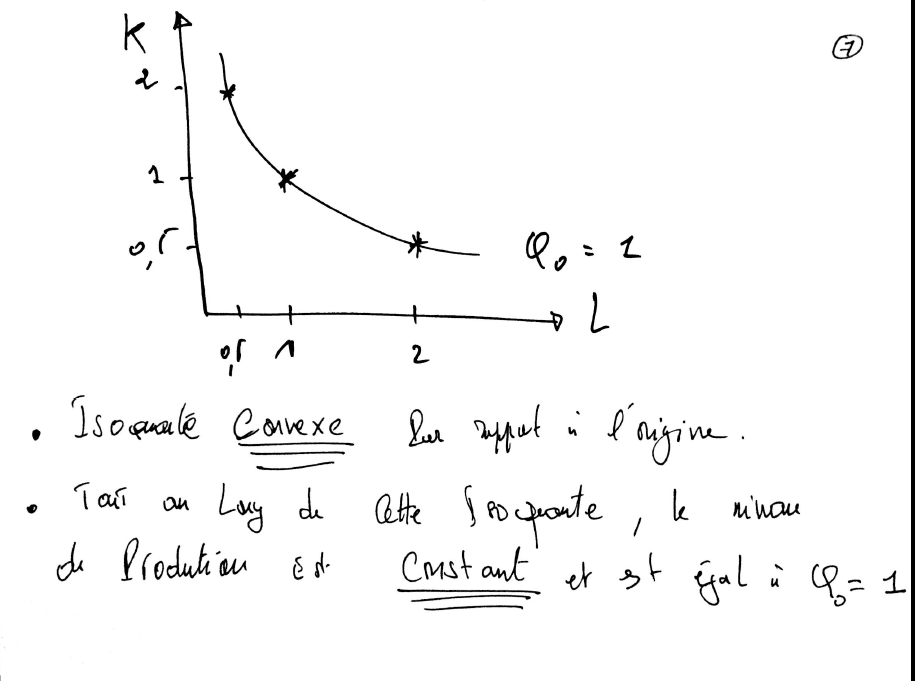 K
7
2
1
0,5
Q₀ = 1
L
0,5 1 2
• Isoquante Convexe Par rapport à l'origine.
• Tout au Long de Cette Isoquante, le niveau
de Production est Constant et est égal à Q₀ = 1